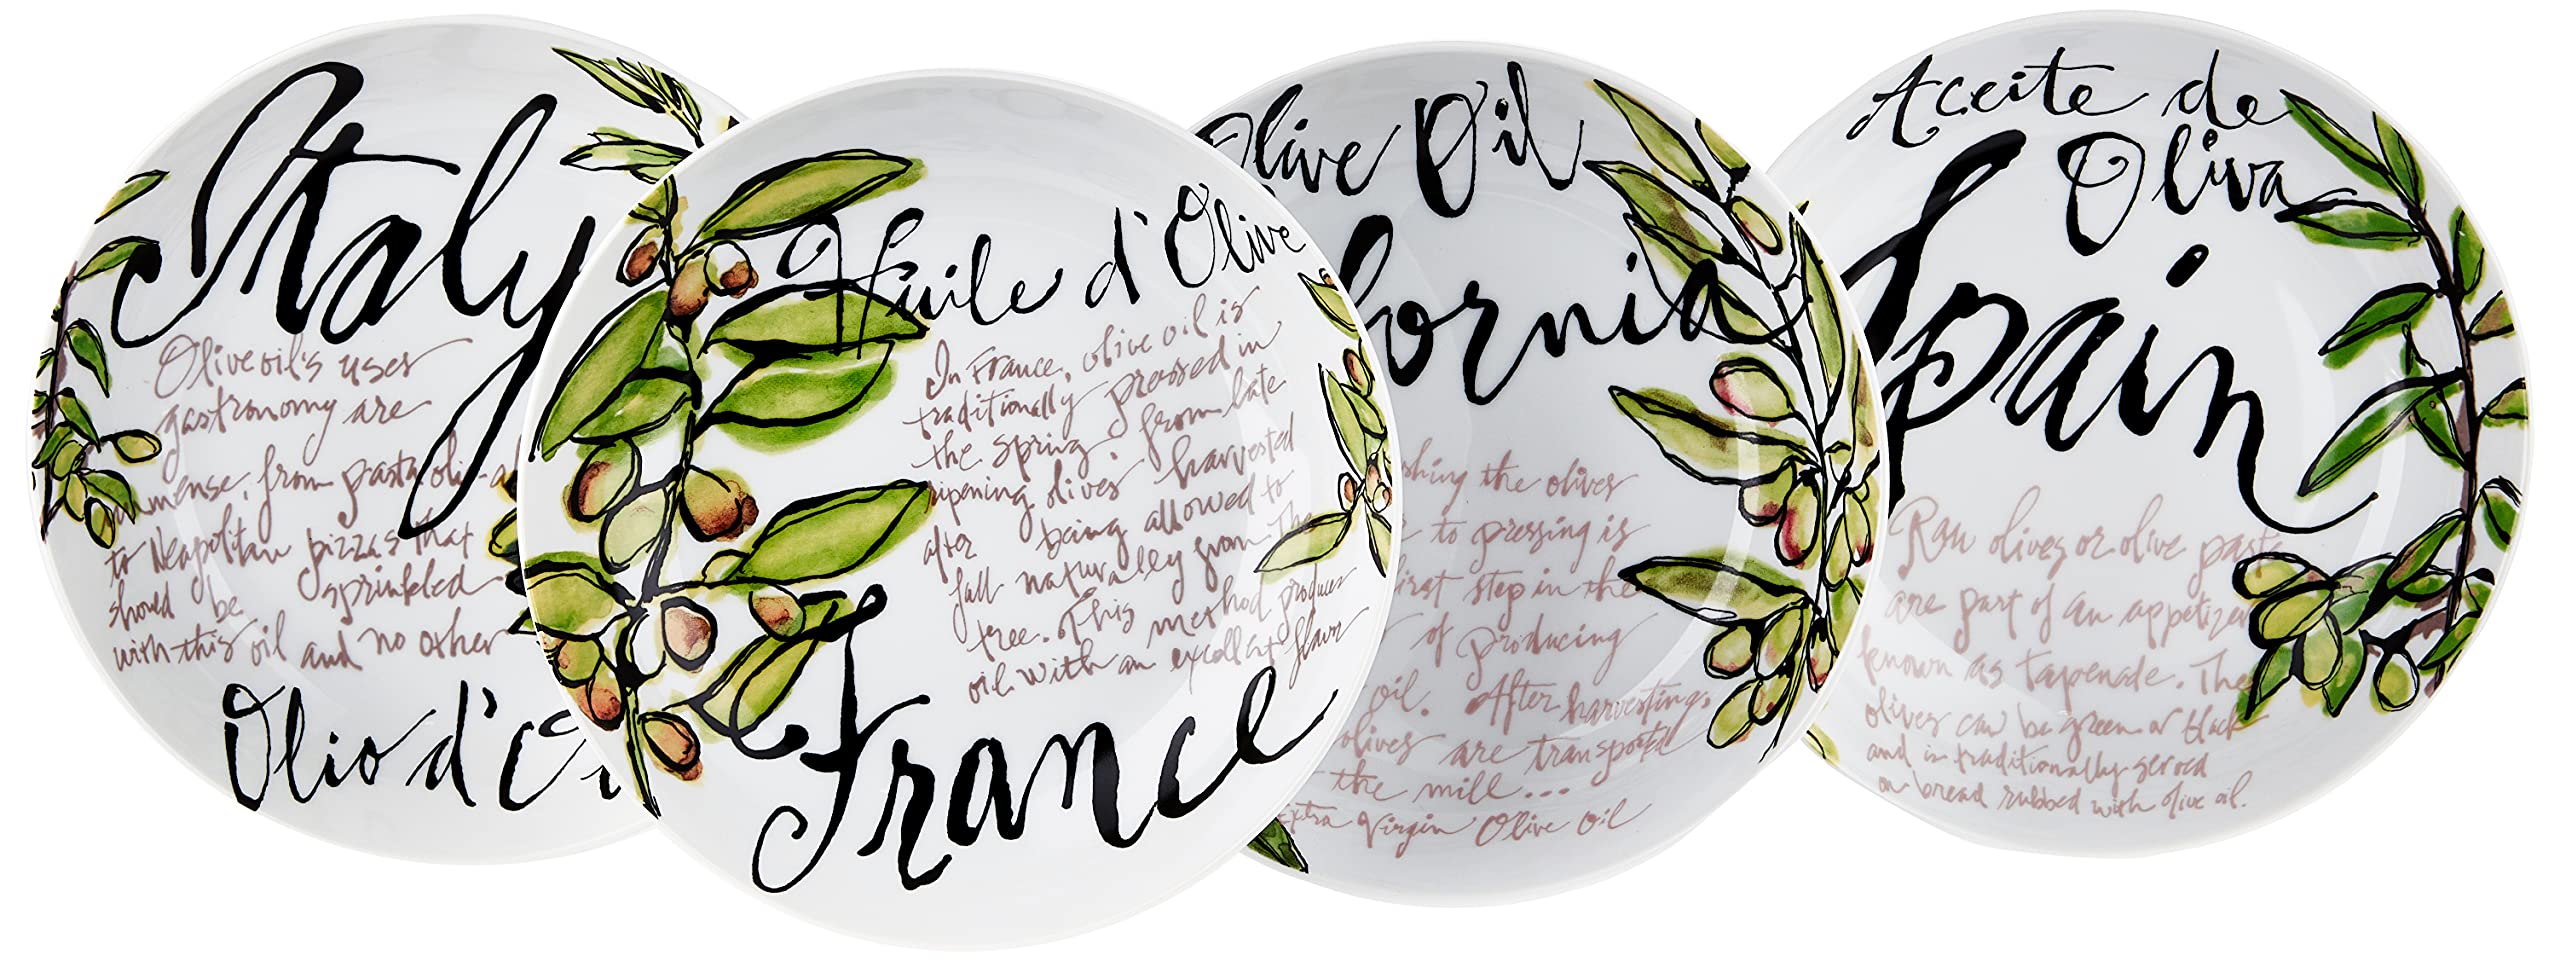 Italy
Olive oil's uses
gastronomy are
mense, from pasta
to Neapolitan pizzas that
should be sprinkled
with this oil and no other
Olio d'O
Huile d'Olive
In France, olive oil is
traditionally pressed in
the spring. From late
ripening olives harvested
after being allowed to
fall naturally from the
tree. This method produces
oil with an excellent flavor
France
Olive Oil
fornia
shing the olives
to pressing is
irst step in the
of producing
oil. After harvesting,
olives are transported
the mill...
Extra Virgin Olive Oil
Aceite de
Oliva
Spain
Raw olives or olive paste
are part of an appetizer
known as tapenade. The
olives can be green or black
and is traditionally served
on bread rubbed with olive oil.